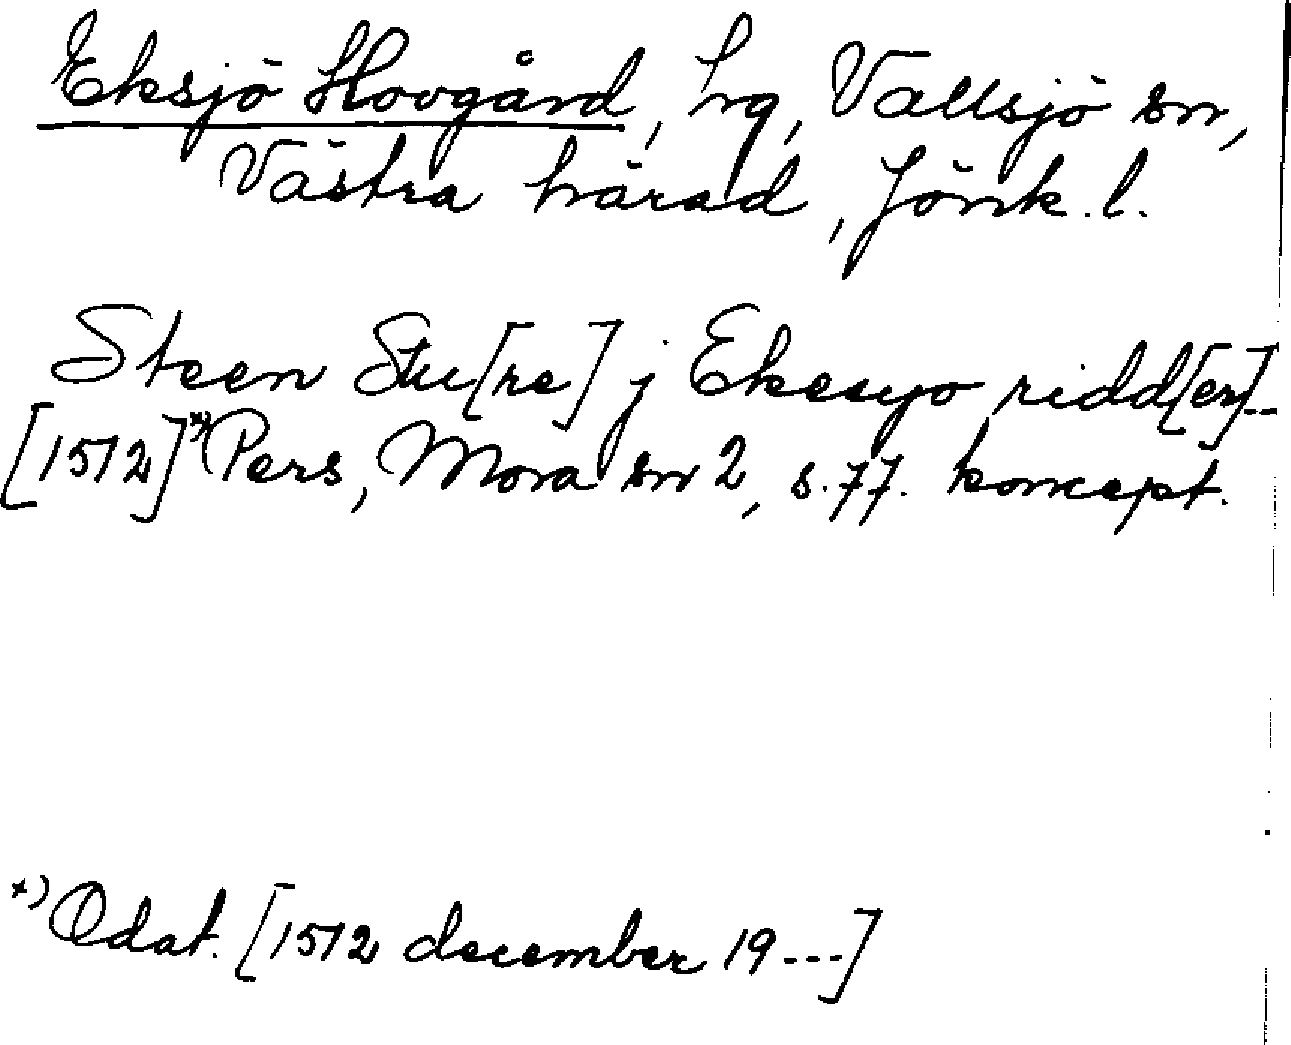 Eksjö Hovgård, hg, Vallsjö sn,
Västra härad, Jönk. l.
Steen Stu[re] j Ekesyo ridd[er]--
[1512]*) Pers, Mora sn 2, s. 77. koncept.
*) Odat. [1512 december 19 ---]